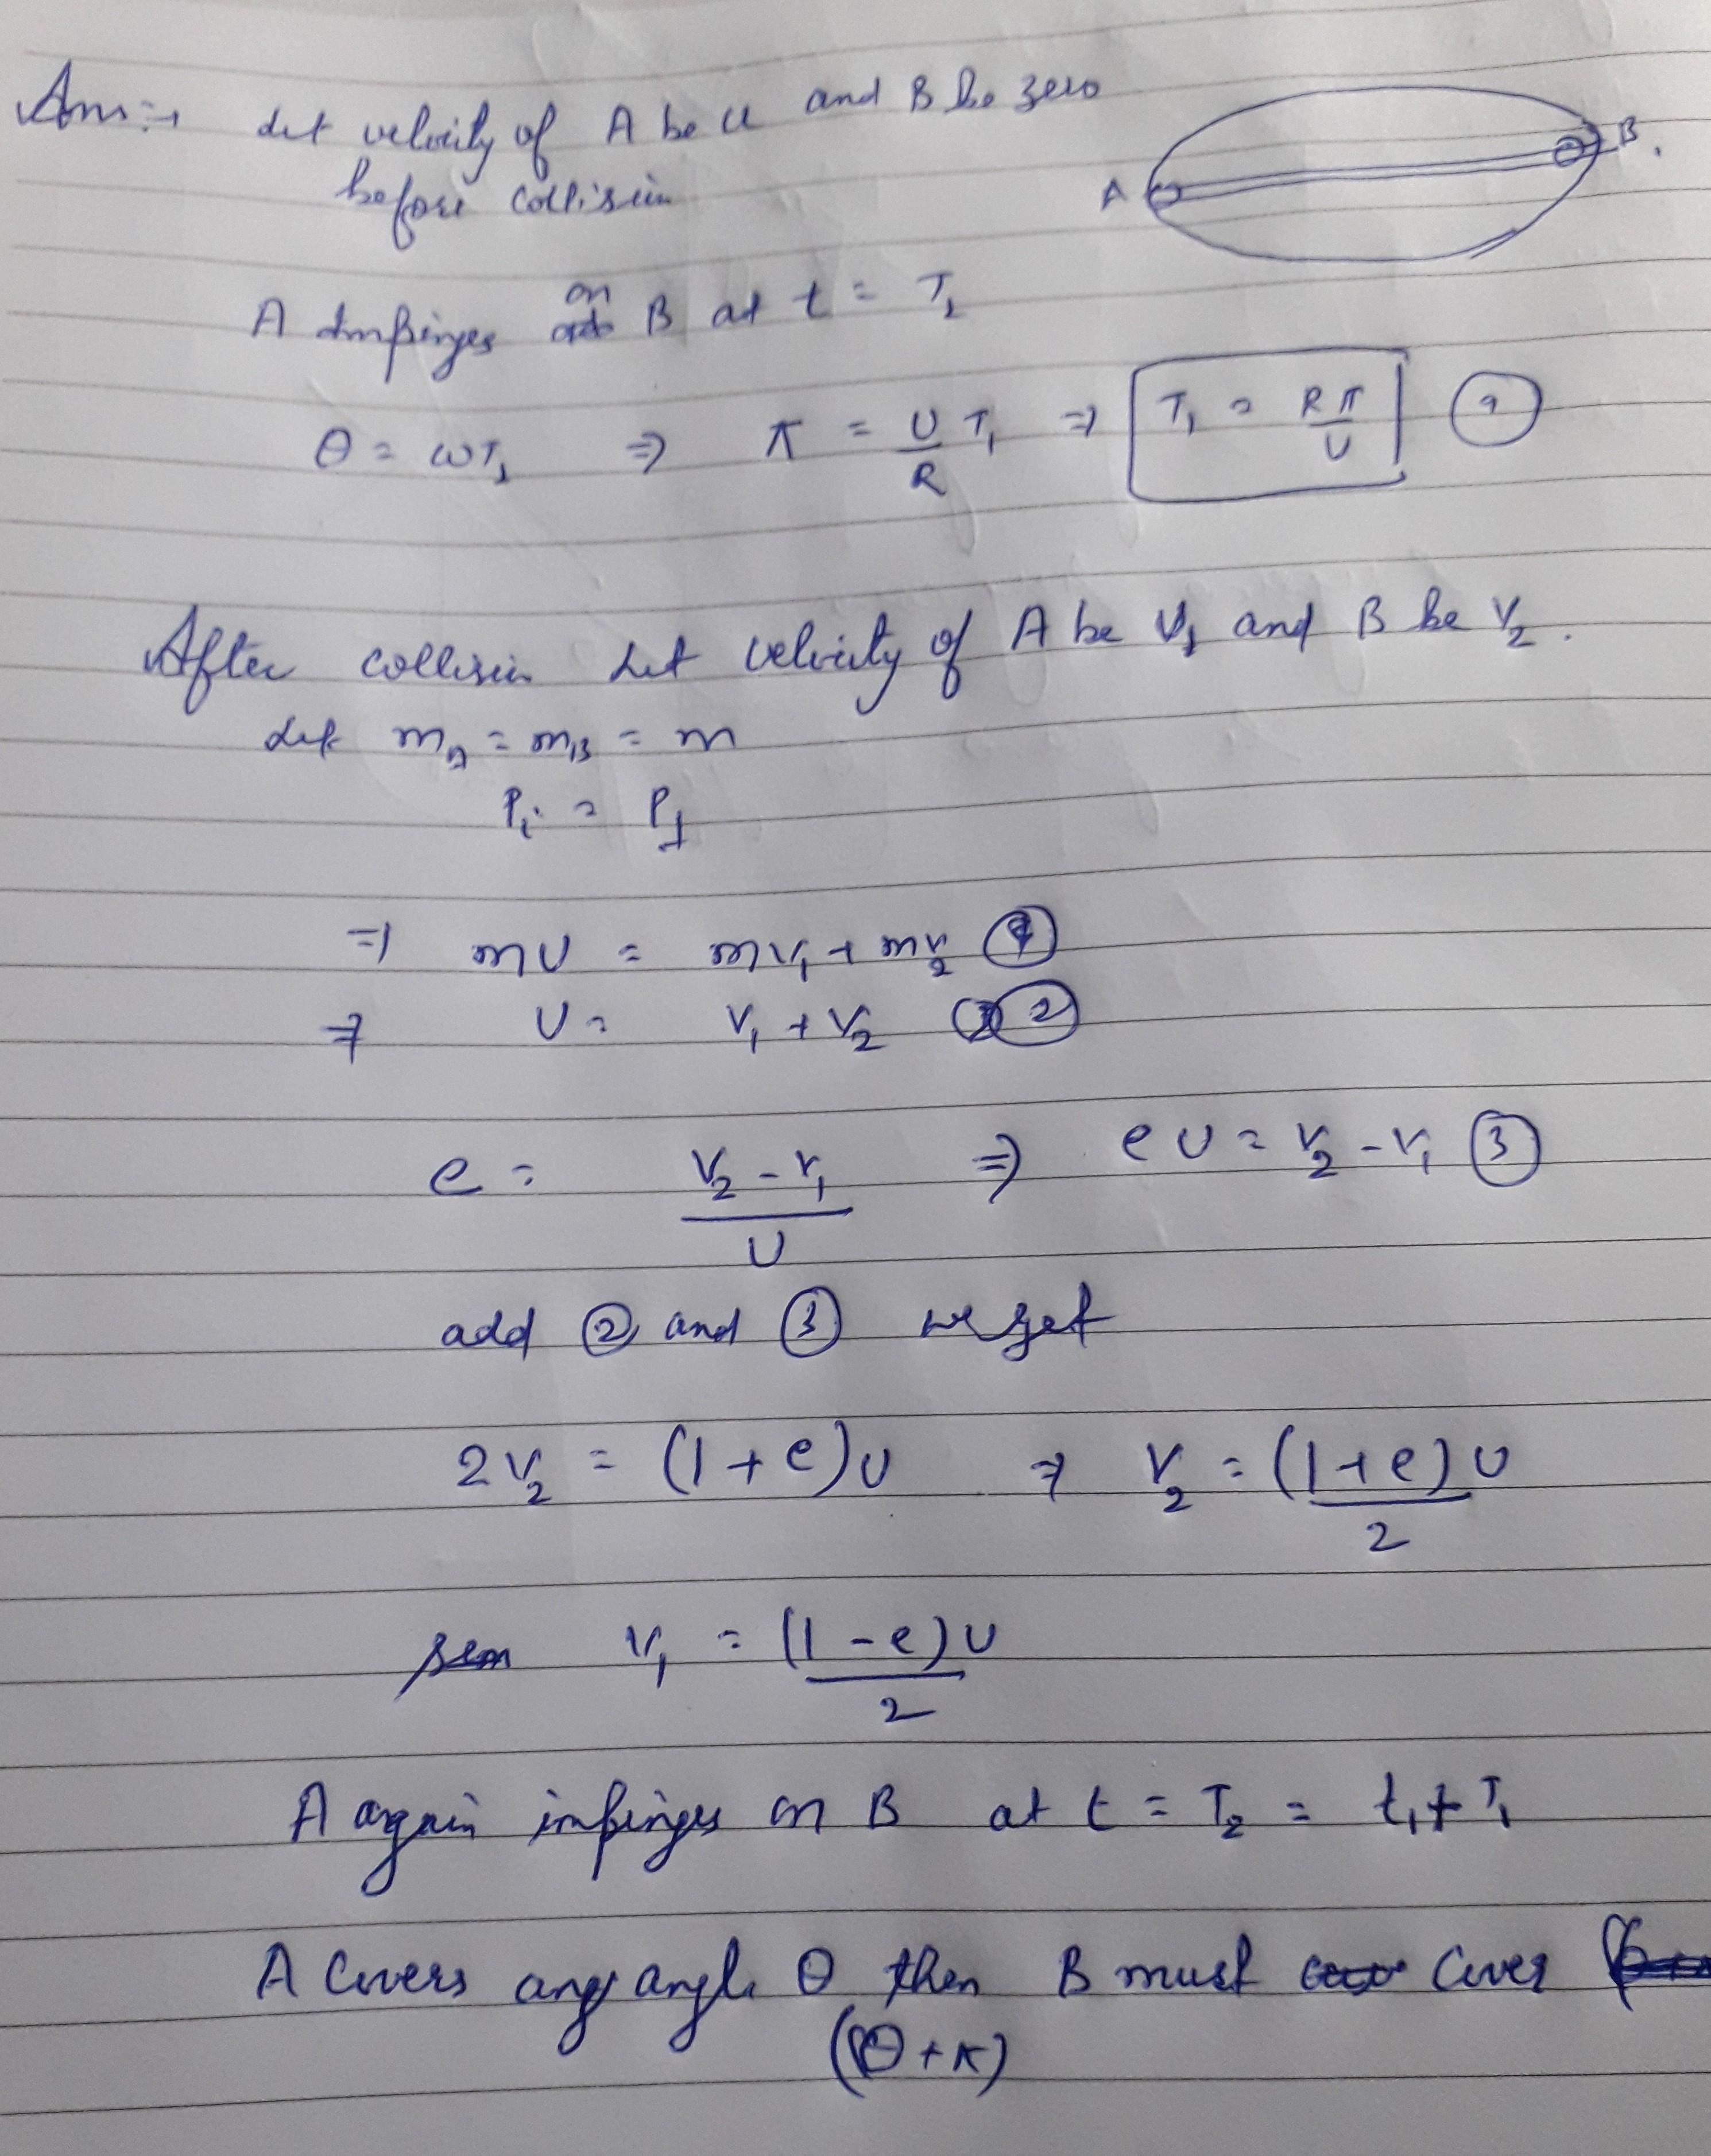 Ans:→ Let velocity of A be u and B be zero
before collision
A B.
A Impinges on B at t = T₁
θ = ωT₁ ⇒ π = U/R T₁ ⇒ T₁ = Rπ/U ①
After collision Let velocity of A be V₁ and B be V₂.
Let m_A = m_B = m
P_i = P_f
⇒ mU = mV₁ + mV₂
⇒ U = V₁ + V₂ ②
e = (V₂ - V₁)/U ⇒ eU = V₂ - V₁ ③
add ② and ③ we get
2V₂ = (1+e)U ⇒ V₂ = (1+e)U/2
V₁ = (1-e)U/2
A again impinges on B at t = T₂ = t₁ + T₁
A Covers angle θ then B must Cover
(θ+π)